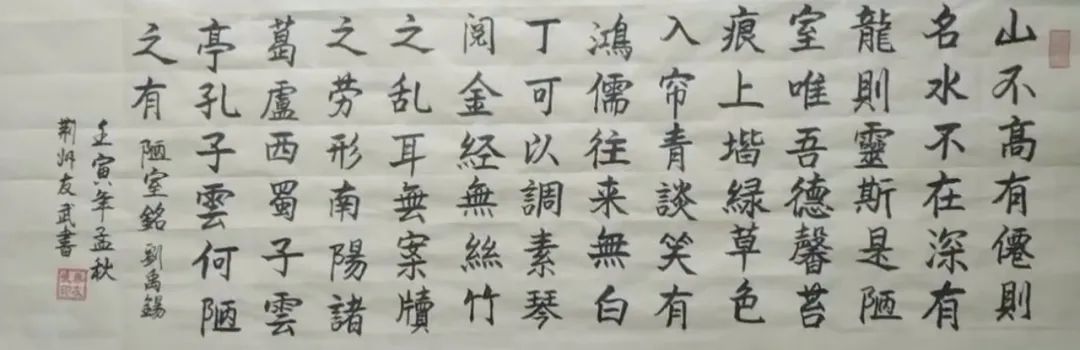 山不高有僊則
名水不在深有
龍則靈斯是陋
室唯吾德馨苔
痕上堦緑草色
入帘青談笑有
鴻儒往来無白
丁可以調素琴
閲金经無絲竹
之乱耳無案牘
之劳形南陽諸
葛盧西蜀子雲
亭孔子雲何陋
之有 陋室銘 劉禹錫
壬寅年孟秋
荆州友武書